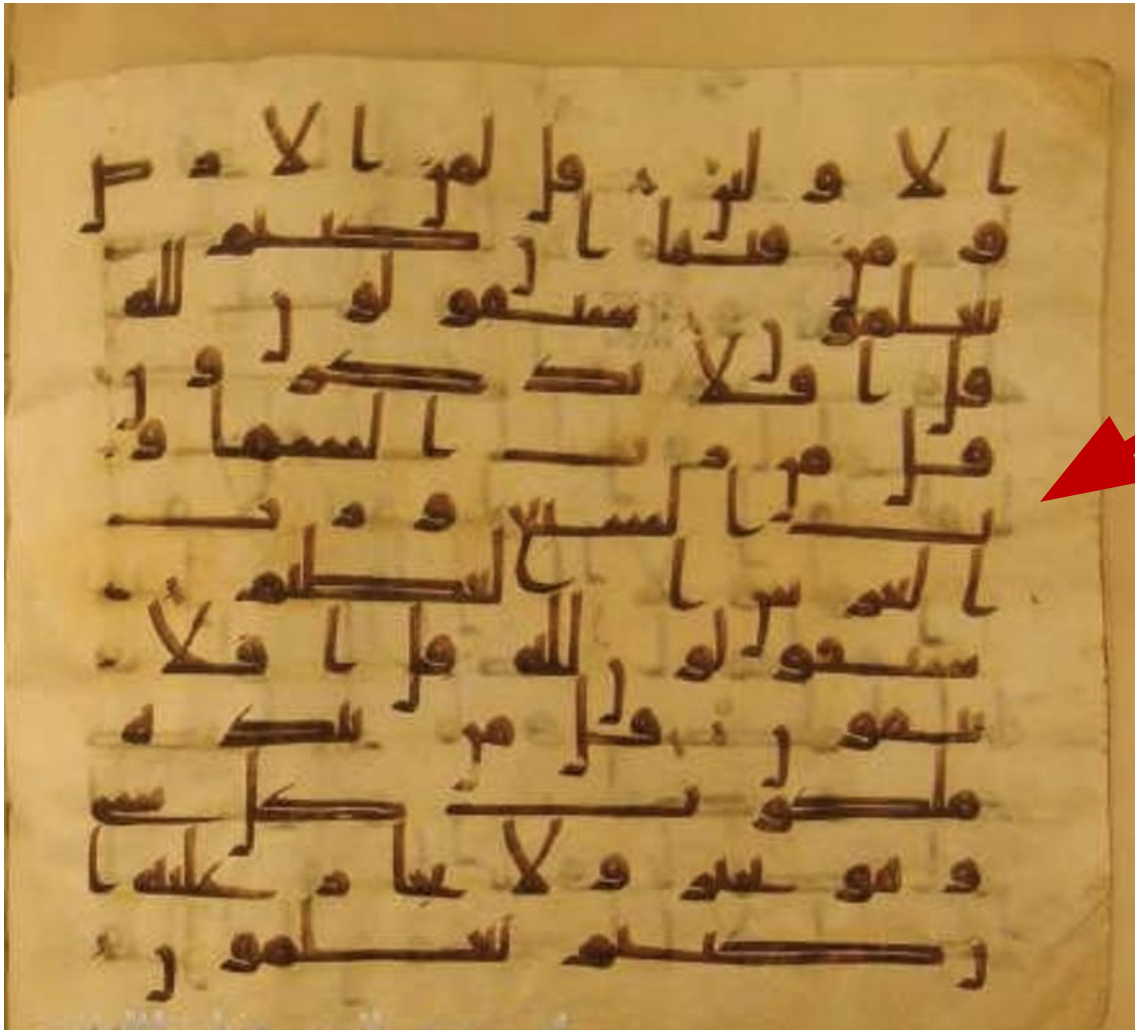 الاولين قل لمن الارض
ومن فيها ان كنتم
تعلمون سيقولون لله
قل افلا تذكرون
قل من رب السماو
ت السبع ورب
العرش العظيم
سيقولون لله قل افلا
تتقون قل من بيده
ملكوت كل شى
وهو يجير ولا يجار عليه ا
ن كنتم تعلمون